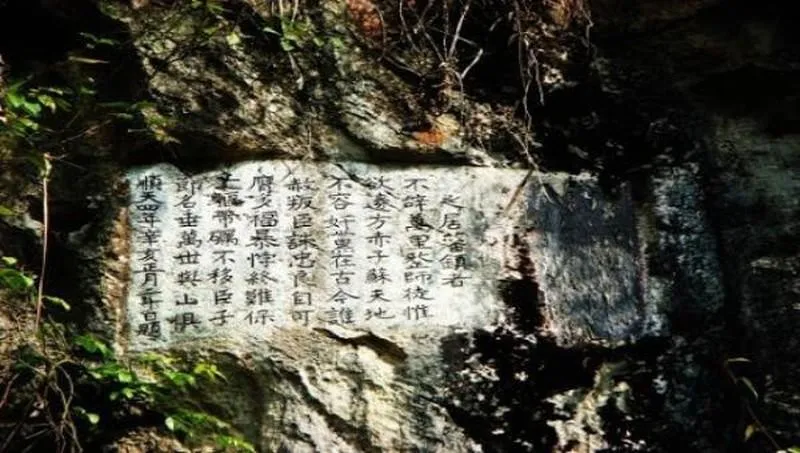 之居 鎮者
不辞萬里整師徒惟
欲邊方赤子蘇天地
不容奸黨在古今誰
赦叛臣誅忠良自可
膺多福暴悖終難保
一軀帶礪不移臣子
節名垂萬世與山俱
順天四年辛亥正月 日題